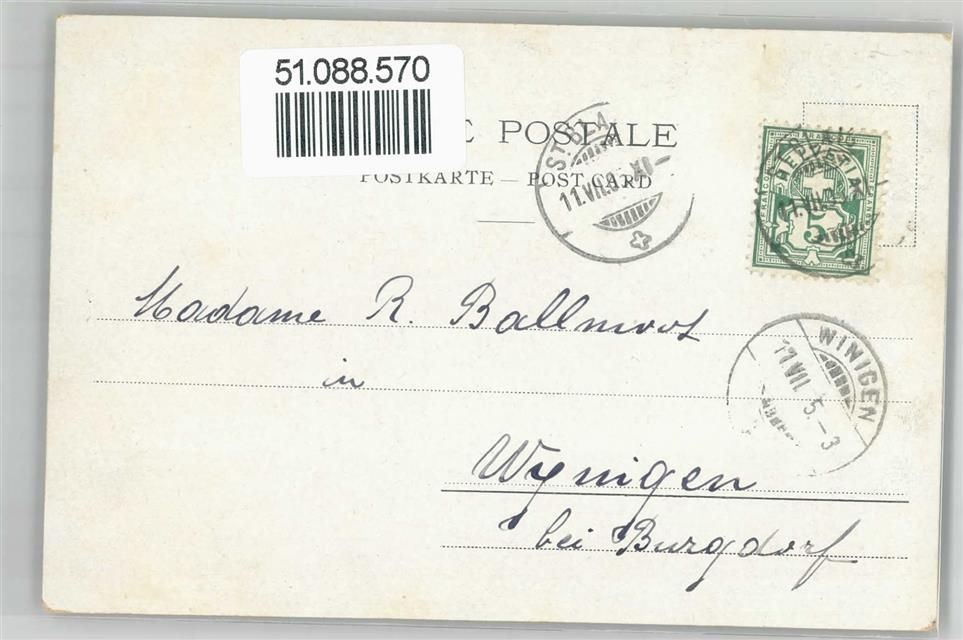 51.088.570
E POSTALE
POSTKARTE — POST CARD
ST. BLA
11.VII.0 XI—
Madame R. Ballmoos
in
WINIGEN
11 VII 5.-3
Wynigen
bei Burgdorf